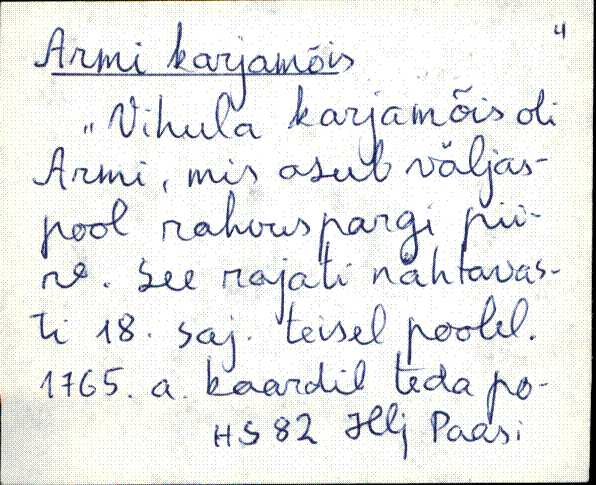 4
Armi karjamõis
„Vihula karjamõis oli
Armi, mis asub väljas-
pool rahvuspargi pii-
re. See rajati nähtavas-
ti 18. saj. teisel poolel.
1765. a. kaardil teda po-
HS 82 Illj Paasi